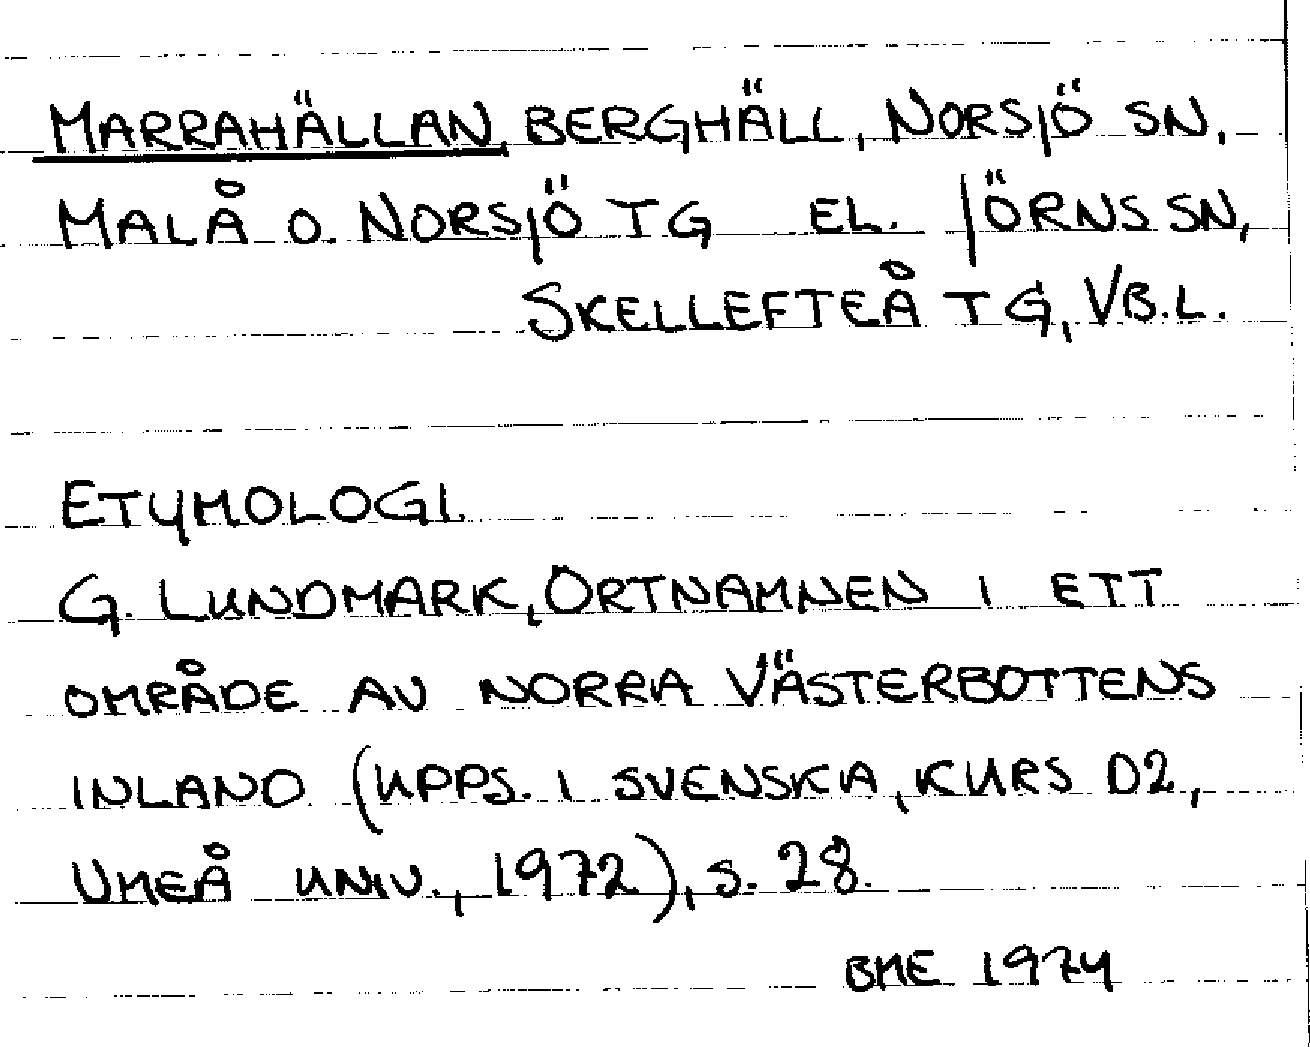 MARRAHÄLLAN, BERGHÄLL, NORSJÖ SN,
MALÅ O. NORSJÖ TG EL. JÖRNS SN,
SKELLEFTEÅ TG, VB.L.
ETYMOLOGI.
G. LUNDMARK, ORTNAMNEN I ETT
OMRÅDE AV NORRA VÄSTERBOTTENS
INLAND (UPPS. I SVENSKA, KURS D2,
UMEÅ UNIV., 1972), S. 28.
BME 1974